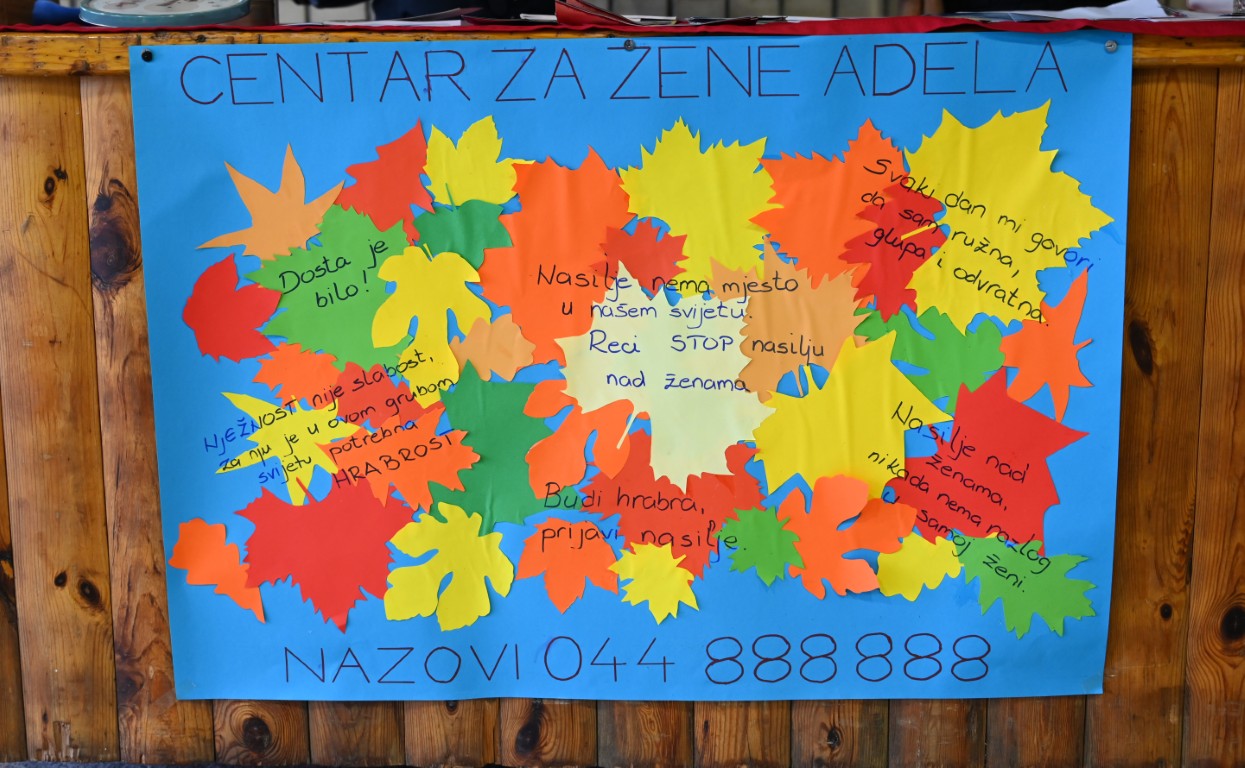 CENTAR ZA ŽENE ADELA
Dosta je
bilo!
Nasilje nema mjesto
u našem svijetu.
Reci STOP nasilju
nad ženama
Svaki dan mi govori
da sam ružna,
glupa i odvratna.
NJEŽNOST nije slabost,
za nju je u ovom grubom
svijetu potrebna
HRABROST
Budi hrabra,
prijavi nasilje.
Nasilje nad
ženama,
nikada nema razlog
u samoj ženi.
NAZOVI 044 888 888